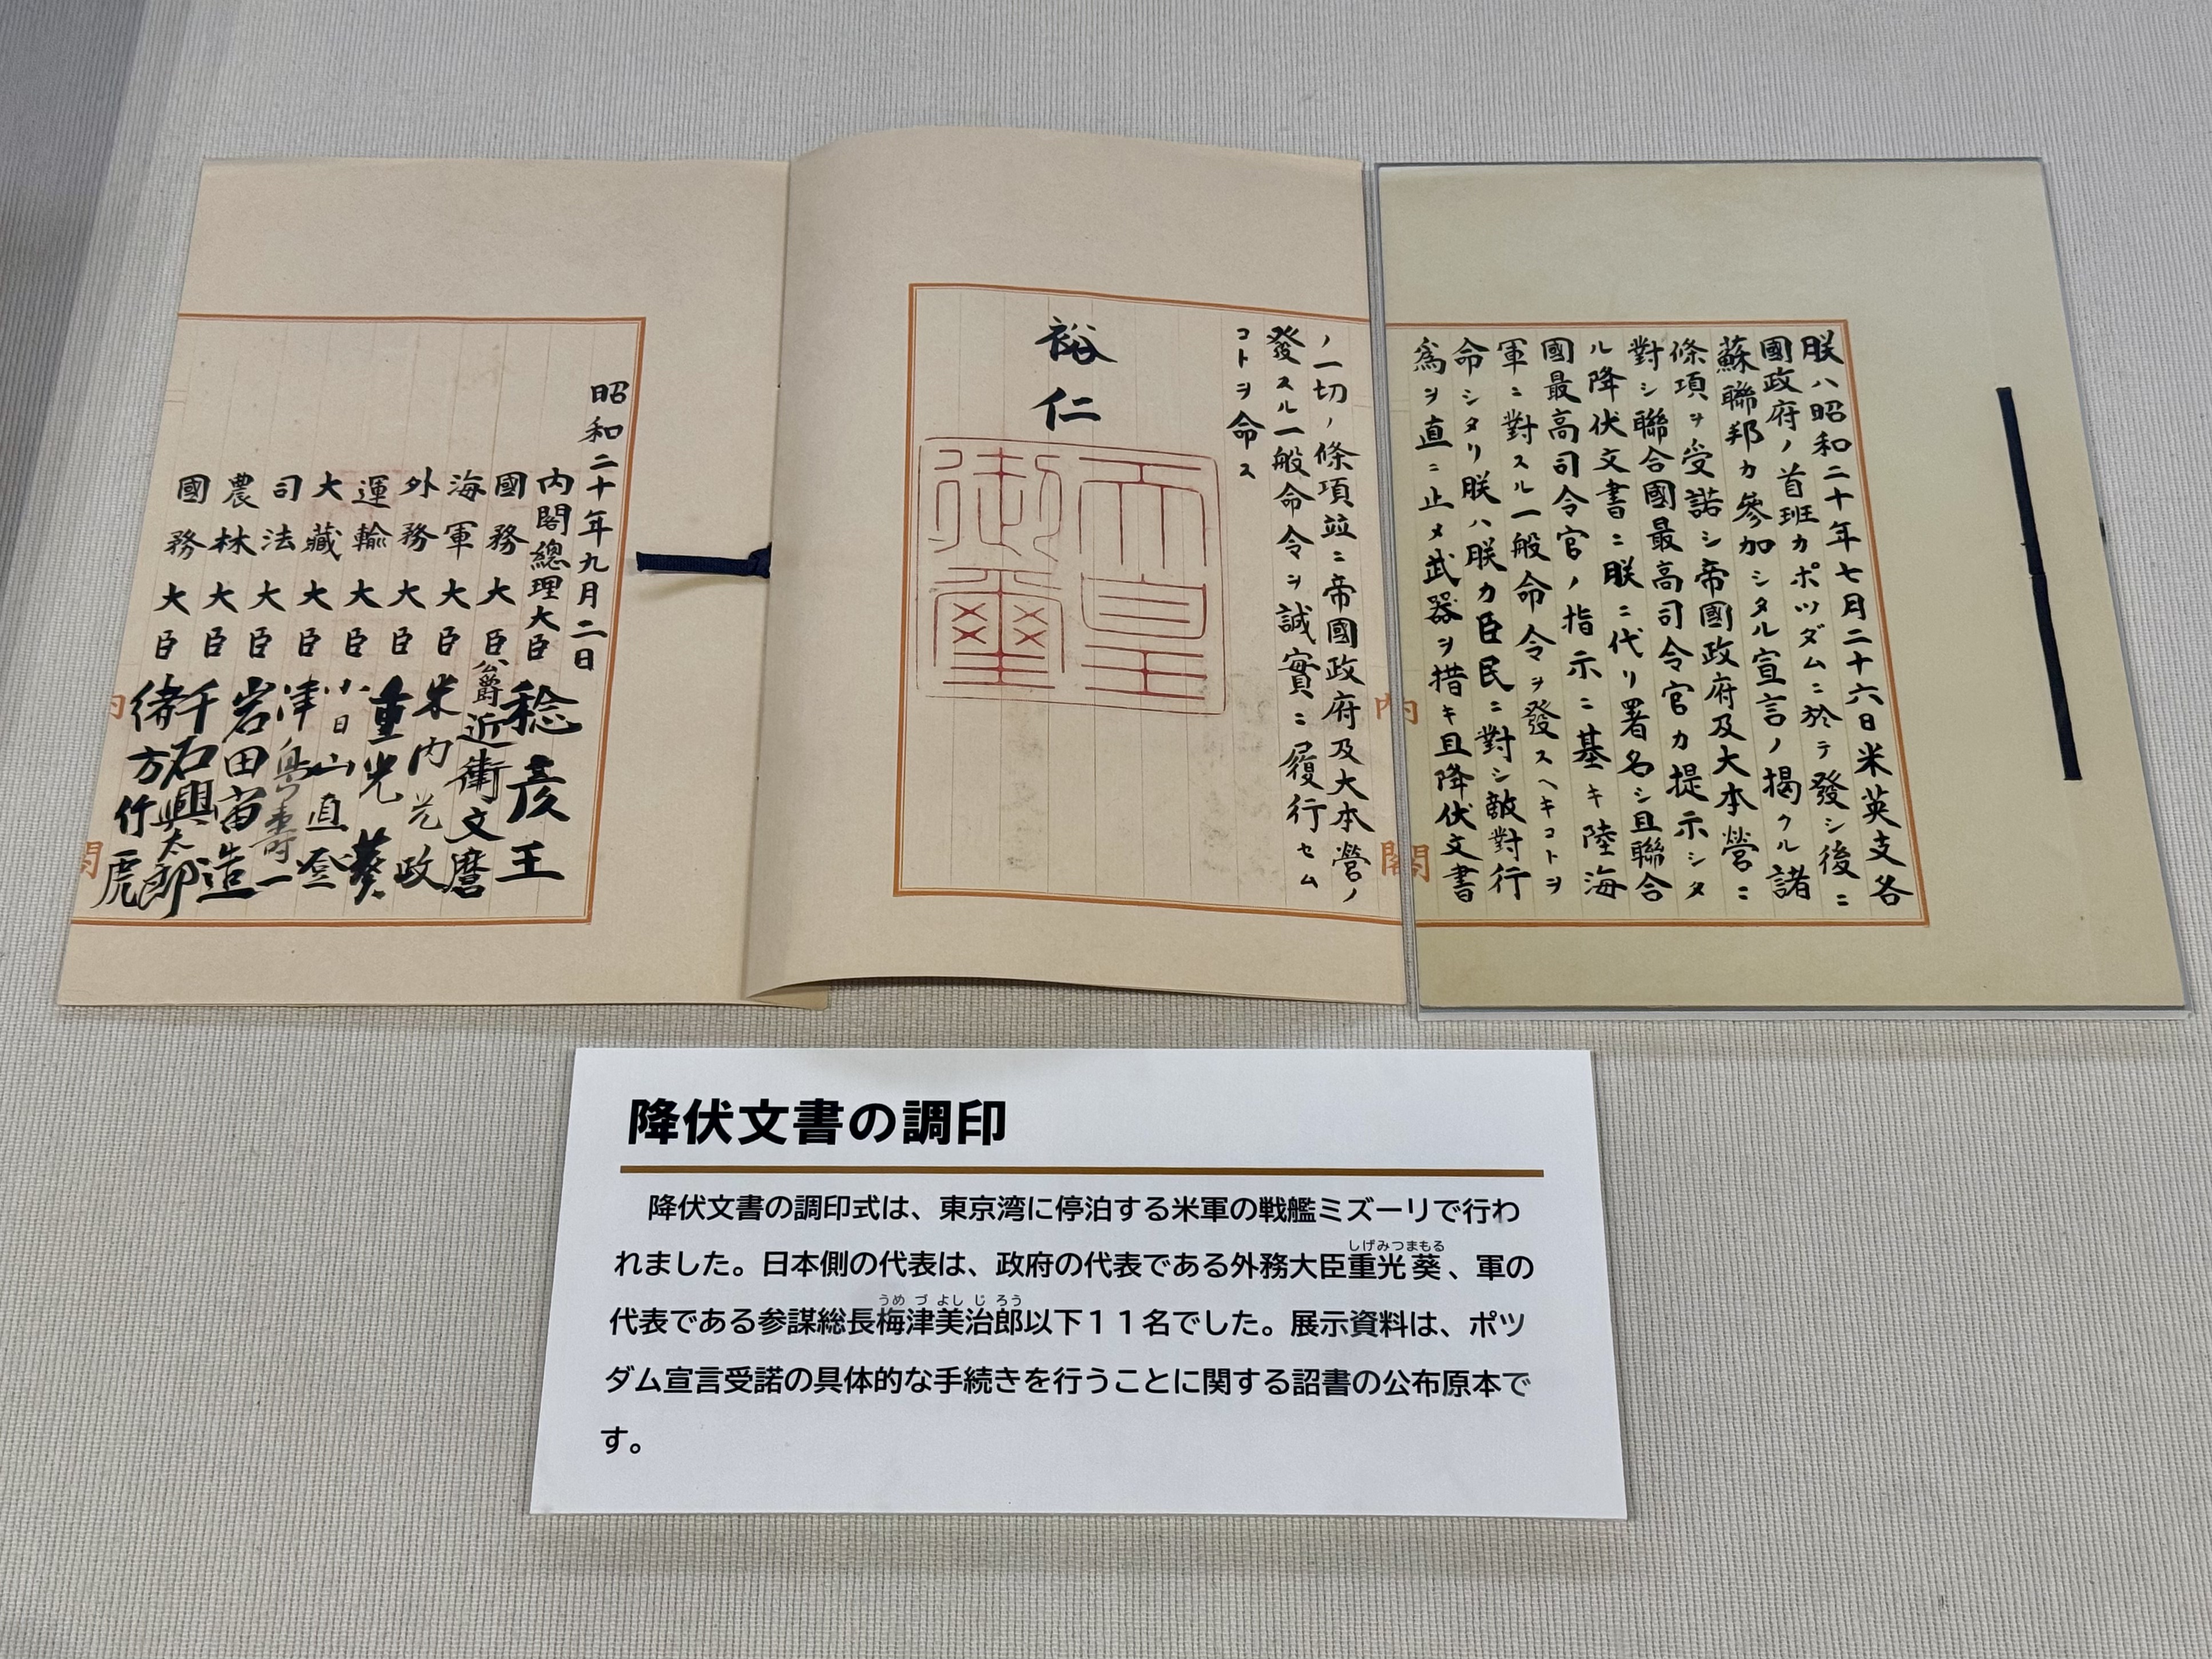 朕ハ昭和二十年七月二十六日米英支各
國政府ノ首班カポツダムニ於テ發シ後ニ
蘇聯邦カ參加シタル宣言ノ掲クル諸
條項ヲ受諾シ帝國政府及大本營ニ
對シ聯合國最高司令官カ提示シタ
ル降伏文書ニ朕ニ代リ署名シ且聯合
國最高司令官ノ指示ニ基キ陸海
軍ニ對スル一般命令ヲ發スヘキコトヲ
命シタリ朕ハ朕カ臣民ニ對シ敵對行
爲ヲ直ニ止メ武器ヲ措キ且降伏文書
ノ一切ノ條項竝ニ帝國政府及大本營ノ
發スル一般命令ヲ誠實ニ履行セム
コトヲ命ス
裕仁
天皇
御璽
内閣
昭和二十年九月二日
内閣總理大臣 稔彦王
國務大臣 公爵近衛文麿
海軍大臣 米内光政
外務大臣 重光葵
運輸大臣 小日山直登
大藏大臣 津島壽一
司法大臣 岩田宙造
農林大臣 千石興太郎
國務大臣 緒方竹虎
内閣
降伏文書の調印
降伏文書の調印式は、東京湾に停泊する米軍の戦艦ミズーリで行わ
れました。日本側の代表は、政府の代表である外務大臣重光葵、軍の
しげみつまもる
代表である参謀総長梅津美治郎以下11名でした。展示資料は、ポツ
うめづよしじろう
ダム宣言受諾の具体的な手続きを行うことに関する詔書の公布原本で
す。